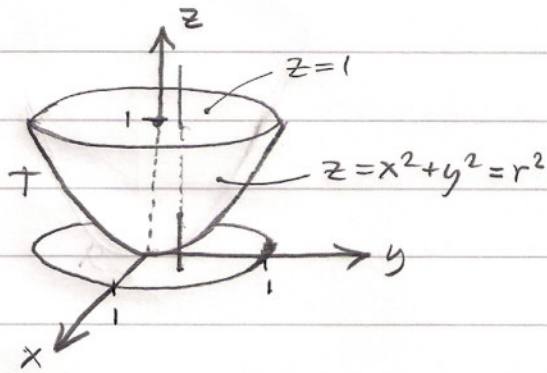 z
z=1
1
T
z=x²+y²=r²
y
1
1
x